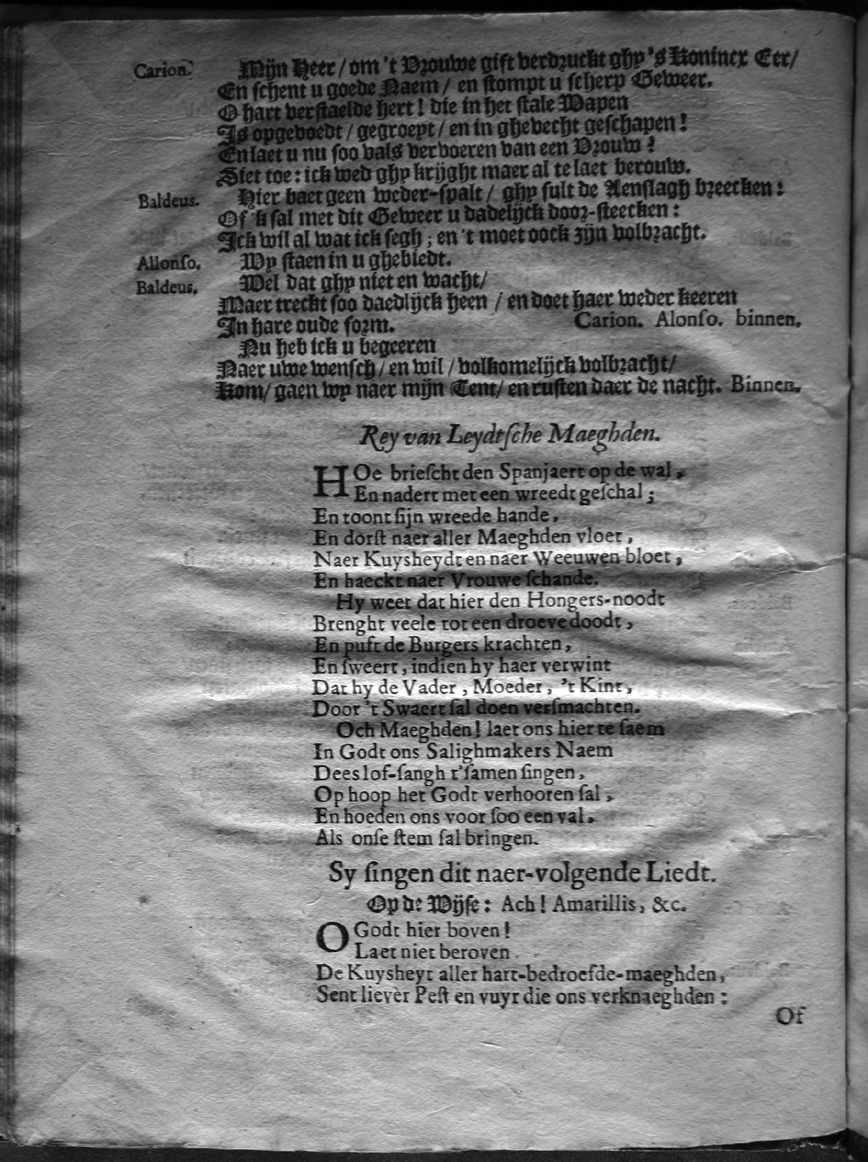 Carion. Mijn Heer / om 't Vrouwe gift verdruckt ghy 's Konincx Eer /
En schent u goede Naem / en stompt u scherp Geweer.
O hart verstaelde hert! die in het stale Wapen
Is opgevoedt / gegroept / en in ghevecht geschapen!
En laet u nu soo vals vervoeren van een Vrouw?
Siet toe: ick wed ghy krijght maer al te laet berouw.
Baldeus. Hier baet geen weder-spalt / ghy sult de Aenslagh breecken:
Of 'k sal met dit Geweer u dadelijck door-steecken:
Ick wil al wat ick segh; en 't moet oock zijn volbracht.
Allonso. Wy staen in u ghebiedt.
Baldeus. Wel dat ghy niet en wacht /
Maer treckt soo daedlijck heen / en doet haer weder keeren
In hare oude form. Carion. Alonso. binnen.
Nu heb ick u begeeren
Naer uwe wensch / en wil / volkomelijck volbracht /
Kom / gaen wy naer mijn Tent / en rusten daer de nacht. Binnen.
Rey van Leydtsche Maeghden.
HOe briescht den Spanjaert op de wal,
En nadert met een wreedt geschal;
En toont sijn wreede hande,
En dorst naer aller Maeghden vloet,
Naer Kuysheydt en naer Weeuwen bloet,
En haeckt naer Vrouwe schande.
Hy weet dat hier den Hongers-noodt
Brenght veele tot een droeve doodt,
En puft de Burgers krachten,
En sweert, indien hy haer verwint
Dat hy de Vader, Moeder, 't Kint,
Door 't Swaert sal doen versmachten.
Och Maeghden! laet ons hier te saem
In Godt ons Salighmakers Naem
Dees lof-sangh t'samen singen,
Op hoop het Godt verhooren sal,
En hoeden ons voor soo een val,
Als onse stem sal bringen.
Sy singen dit naer-volgende Liedt.
Op de Wijse: Ach! Amarillis, &c.
O Godt hier boven!
Laet niet beroven
De Kuysheyt aller hart-bedroefde-maeghden,
Sent liever Pest en vuyr die ons verknaeghden:
Of